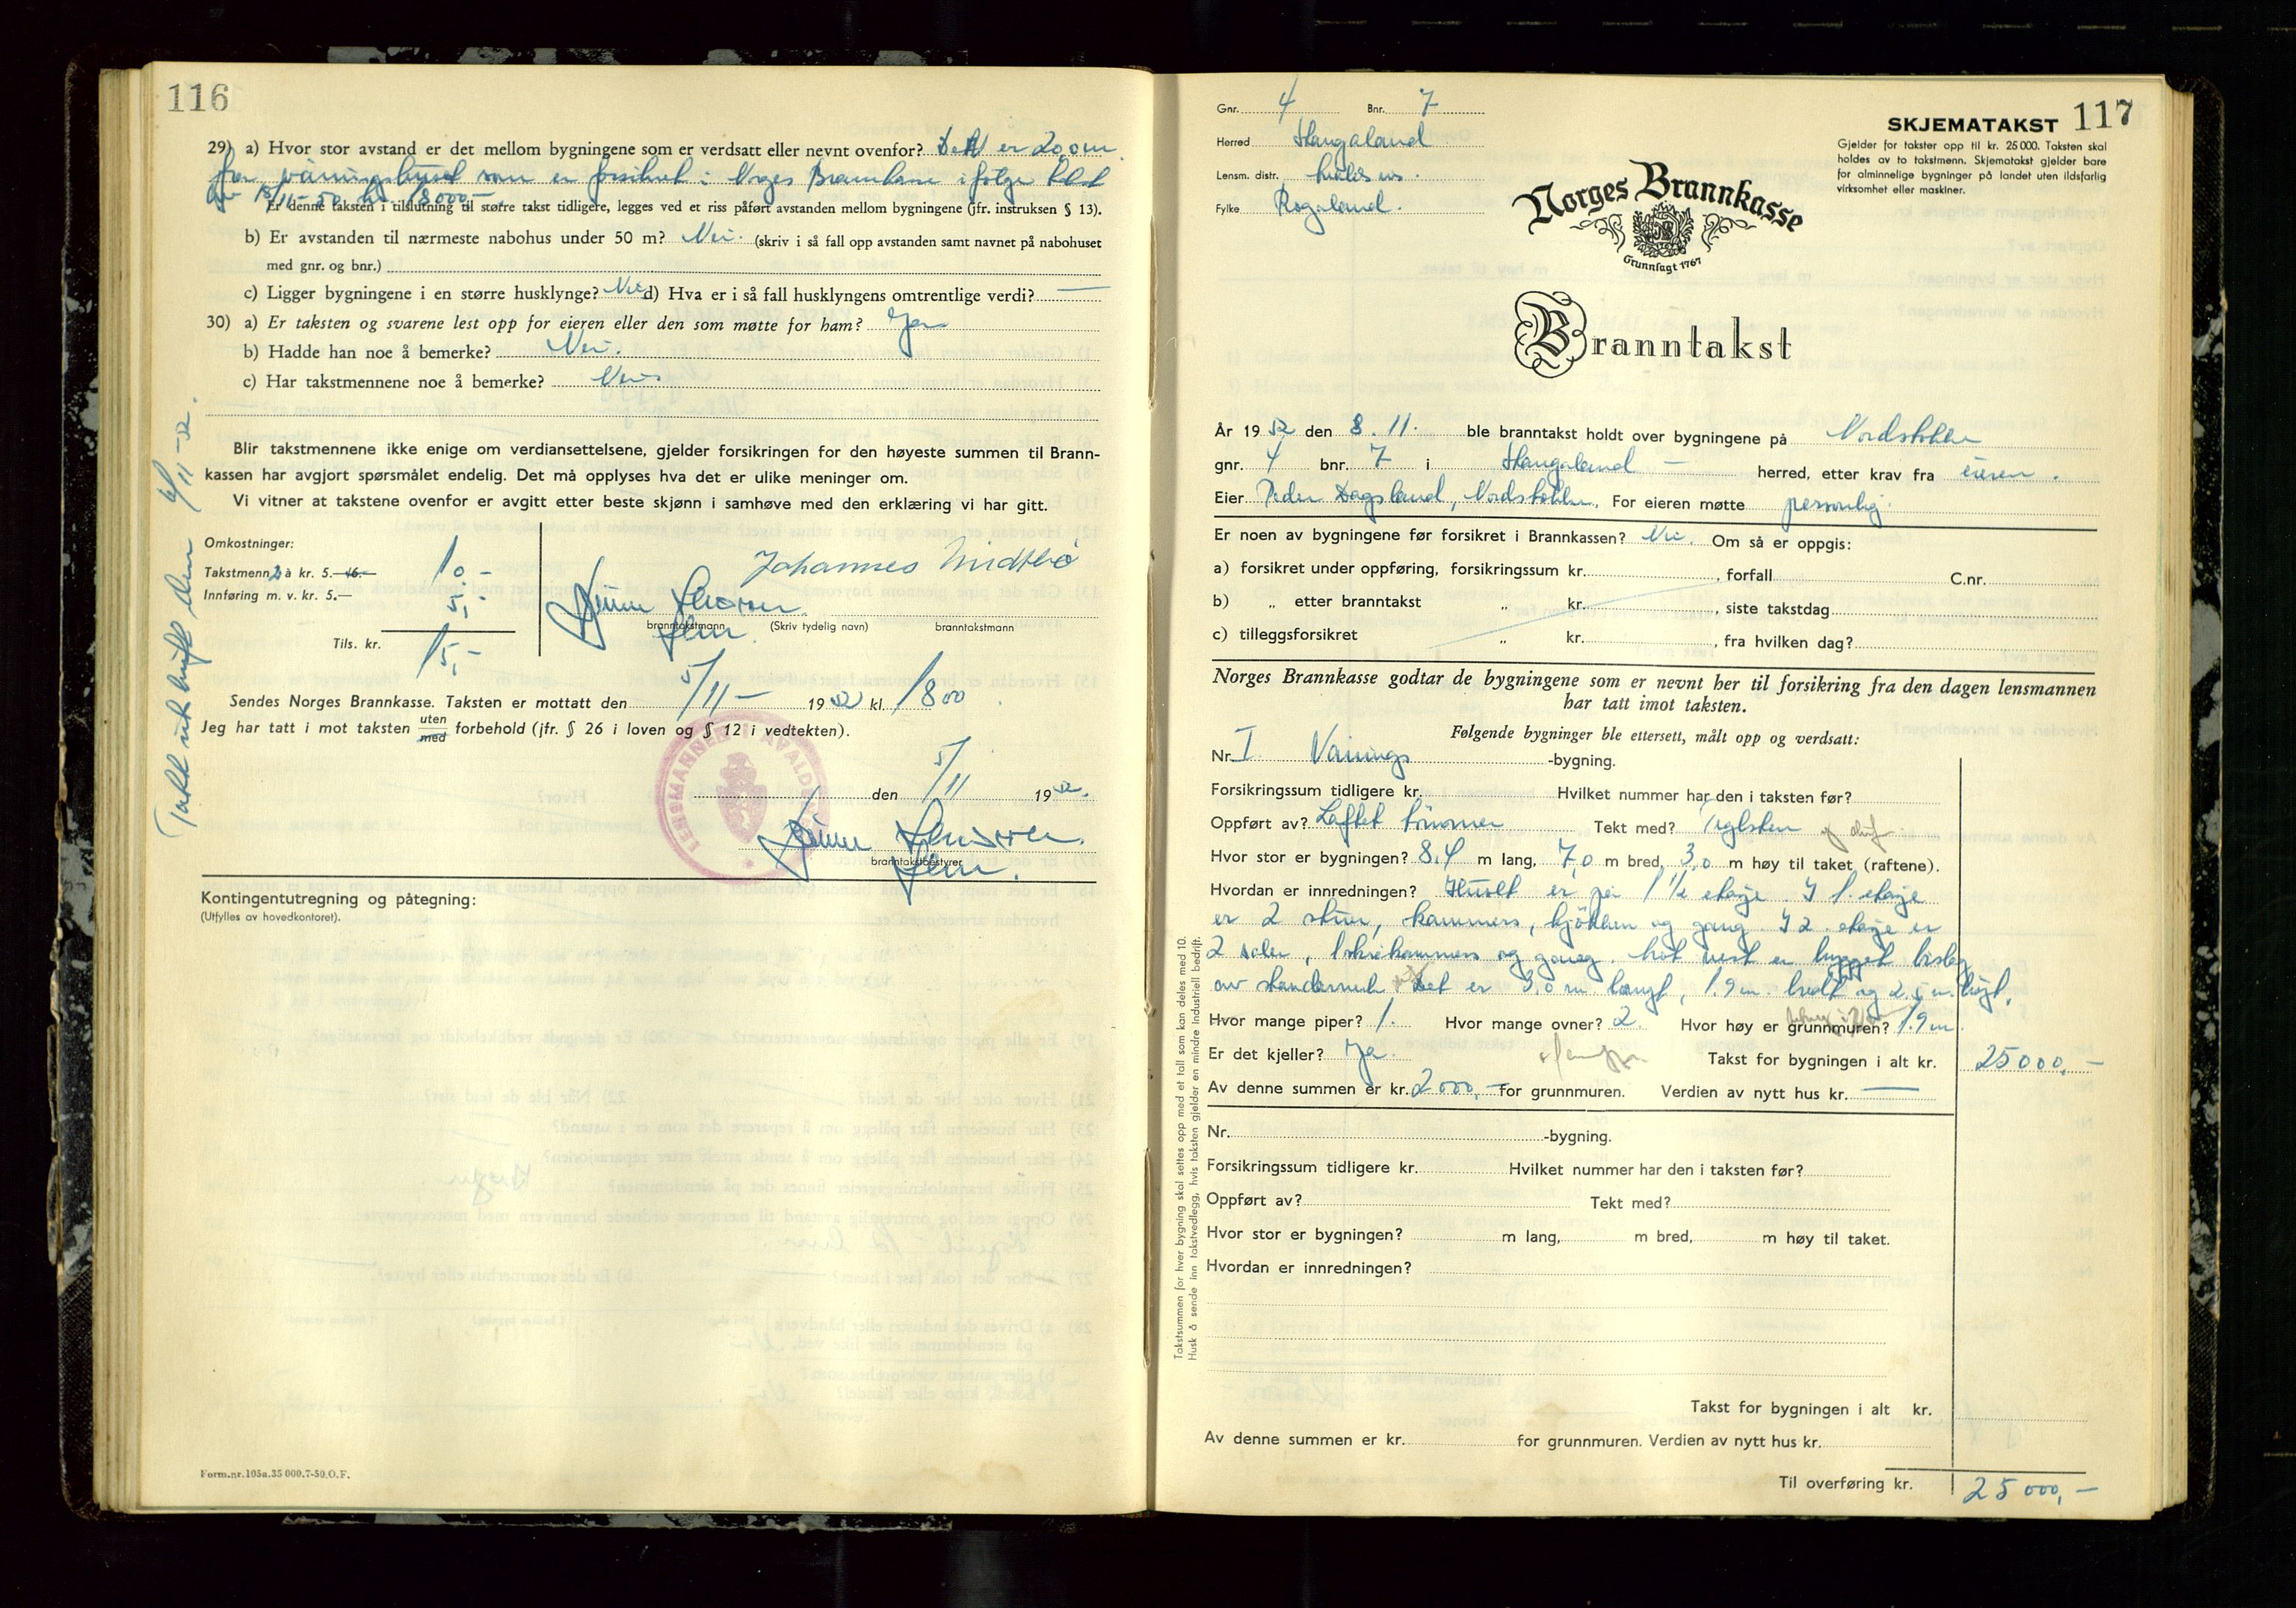 116
29) a) Hvor stor avstand er det mellom bygningene som er verdsatt eller nevnt ovenfor? Det er 20,0 m
fra våningshuset som er forsikret i Norges Brannkasse ifølge takst
av 18/11-50 kr. 18000,-
Er denne taksten i tilslutning til større takst tidligere, legges ved et riss påført avstanden mellom bygningene (jfr. instruksen § 13).
b) Er avstanden til nærmeste nabohus under 50 m? Nei. (skriv i så fall opp avstanden samt navnet på nabohuset
med gnr. og bnr.)
c) Ligger bygningene i en større husklynge? Nei d) Hva er i så fall husklyngens omtrentlige verdi? —
30) a) Er taksten og svarene lest opp for eieren eller den som møtte for ham? Ja
b) Hadde han noe å bemerke? Nei.
c) Har takstmennene noe å bemerke? Nei
Blir takstmennene ikke enige om verdiansettelsene, gjelder forsikringen for den høyeste summen til Brann-
kassen har avgjort spørsmålet endelig. Det må opplyses hva det er ulike meninger om.
Vi vitner at takstene ovenfor er avgitt etter beste skjønn i samhøve med den erklæring vi har gitt.
Omkostninger:
Takstmenn 2 à kr. 5.- 10,-
Innføring m. v. kr. 5.— 5,-
Tils. kr. 15,-
Johannes
branntakstmann (Skriv tydelig navn) branntakstmann
Sendes Norges Brannkasse. Taksten er mottatt den 5/11 - 1952 kl. 1800
Jeg har tatt i mot taksten uten med forbehold (jfr. § 26 i loven og § 12 i vedtekten).
den 5/11 1952.
branntakstbestyrer
LENSMANNEN I AVALDSNES
Takst utskrift den 6/11-52.
Kontingentutregning og påtegning:
(Utfylles av hovedkontoret).
Form.nr.105a.35 000.7-50.O.F.
117
Gnr. 4 Bnr. 7
Herred Skaugaland
Lensm. distr.
Fylke Rogaland.
SKJEMATAKST
Gjelder for takster opp til kr. 25 000. Taksten skal
holdes av to takstmenn. Skjematakst gjelder bare
for alminnelige bygninger på landet uten ildsfarlig
virksomhet eller maskiner.
Norges Brannkasse
Grunnlagt 1767
Branntakst
År 1952 den 3. 11. ble branntakst holdt over bygningene på
gnr. 4 bnr. 7 i Skaugaland — herred, etter krav fra eieren.
Eier Peder Dagsland, For eieren møtte personlig.
Er noen av bygningene før forsikret i Brannkassen? Nei. Om så er oppgis:
a) forsikret under oppføring, forsikringssum kr. , forfall C.nr.
b) „ etter branntakst „ kr. , siste takstdag
c) tilleggsforsikret „ kr. , fra hvilken dag?
Norges Brannkasse godtar de bygningene som er nevnt her til forsikring fra den dagen lensmannen
har tatt imot taksten.
Følgende bygninger ble ettersett, målt opp og verdsatt:
Nr. I Vånings -bygning.
Forsikringssum tidligere kr. Hvilket nummer har den i taksten før?
Oppført av? Laftet tømmer Tekt med? Teglsten og skif
Hvor stor er bygningen? 8,4 m lang, 7,0 m bred, 3,0 m høy til taket (raftene).
Hvordan er innredningen? Huset er på 1 1/2 etasje. I 1. etasje
er 2 stuer, kammers, kjøkken og gang. I 2. etasje er
2 saler, 1 skråkammers og gang. Mot vest er bygget bislag
av standerverk Det er 3,0 m langt, 1.9 m. bredt og 2.5 m. høyt.
Hvor mange piper? 1. Hvor mange ovner? 2 Hvor høy er grunnmuren? 1.9 m.
Er det kjeller? Ja. Takst for bygningen i alt kr. 25000,-
Av denne summen er kr. 2000,- for grunnmuren. Verdien av nytt hus kr. —
Nr. -bygning.
Forsikringssum tidligere kr. Hvilket nummer har den i taksten før?
Oppført av? Tekt med?
Hvor stor er bygningen? m lang, m bred, m høy til taket.
Hvordan er innredningen?
Takst for bygningen i alt kr.
Av denne summen er kr. for grunnmuren. Verdien av nytt hus kr.
Til overføring kr. 25000,-
Takstsummen for hver bygning skal settes opp med et tall som kan deles med 10.
Husk å sende inn takstvedlegg, hvis taksten gjelder en mindre industriell bedrift.